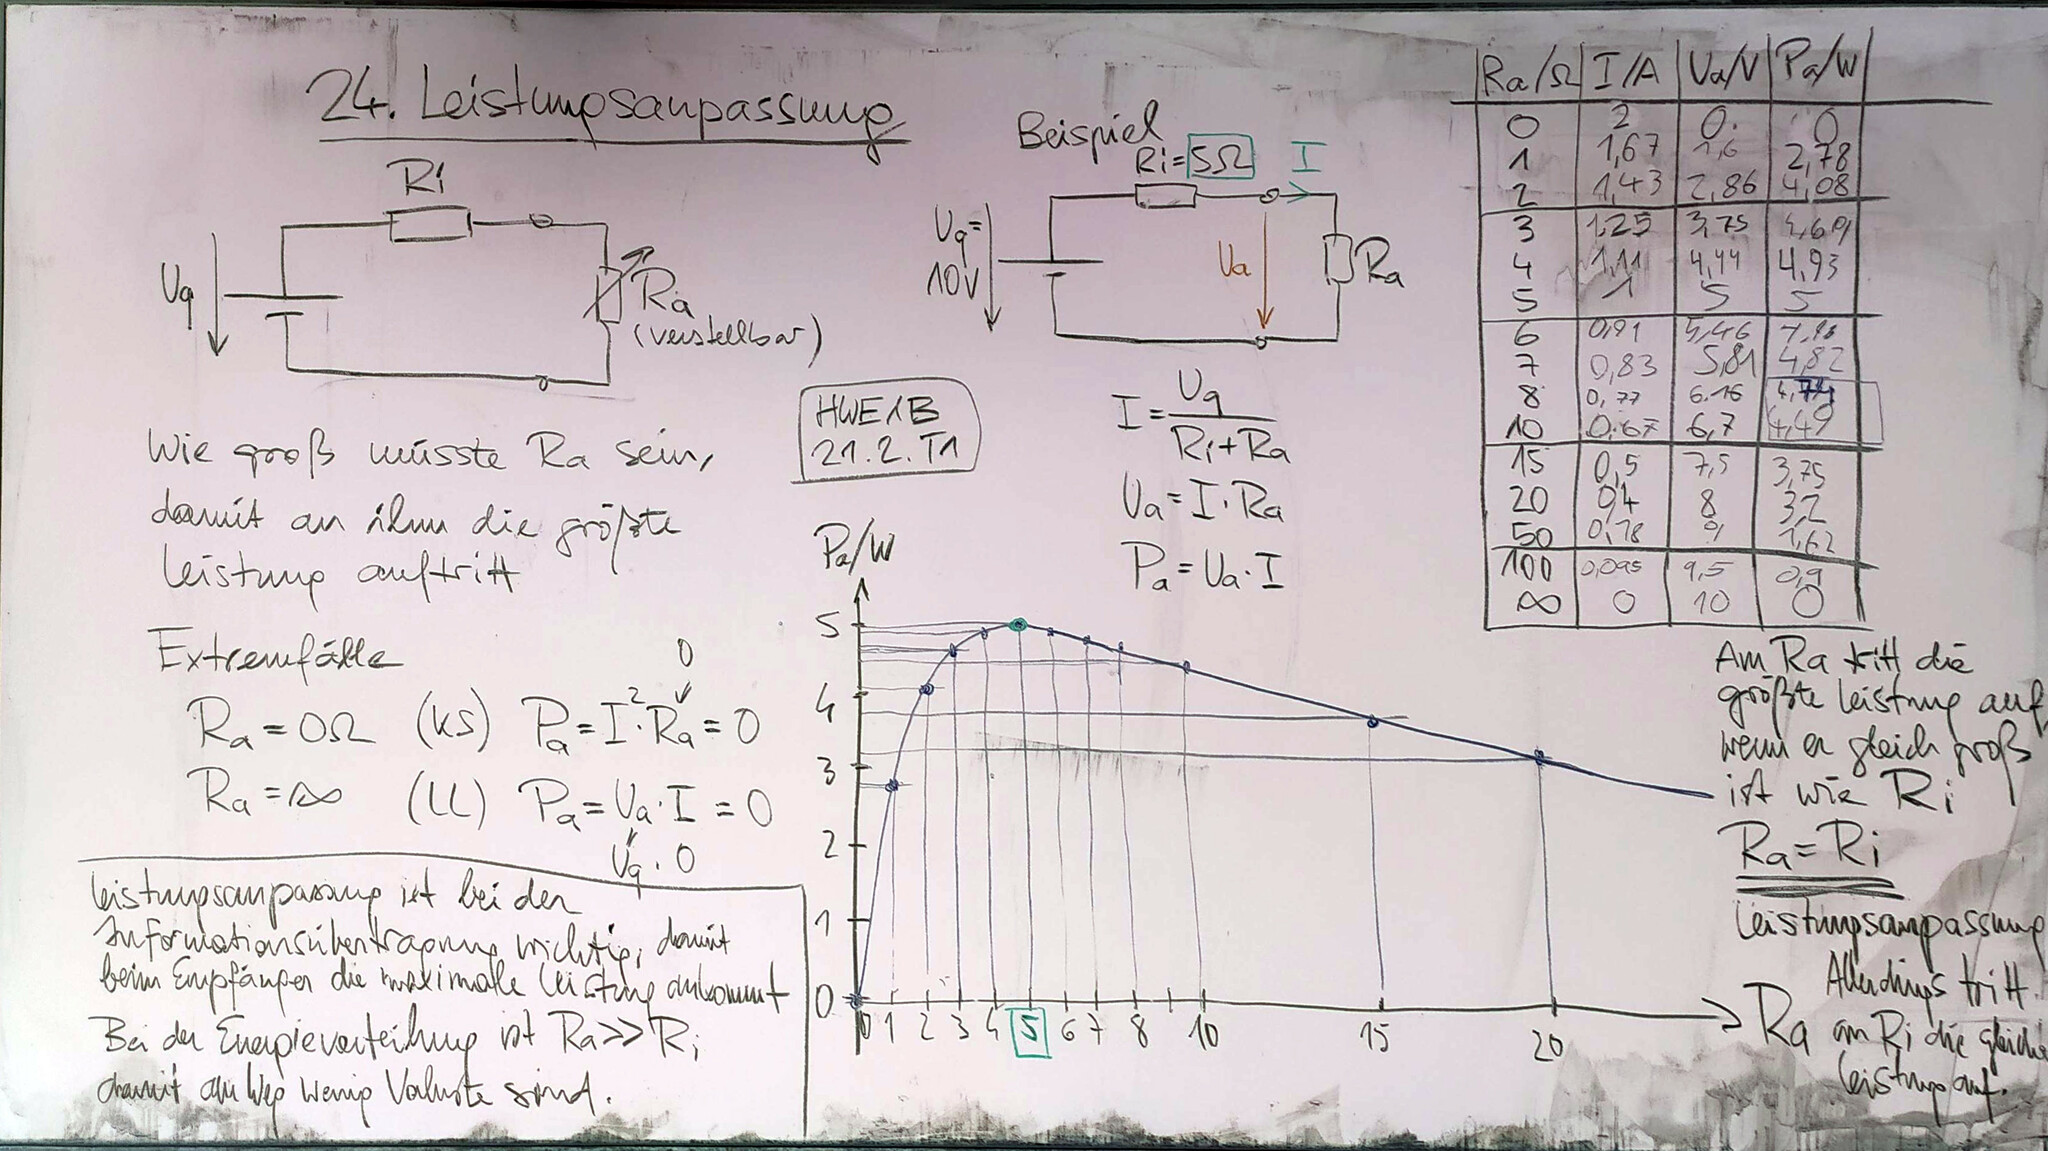 24. Leistungsanpassung
Ri
Uq
Ra
(verstellbar)
Wie groß müsste Ra sein,
damit an ihm die größte
Leistung auftritt
Extremfälle
0
Ra = 0Ω (KS) Pa = I²·Ra = 0
Ra = ∞ (LL) Pa = Ua·I = 0
Uq·0
Leistungsanpassung ist bei der
Informationsübertragung wichtig, damit
beim Empfänger die maximale Leistung ankommt
Bei der Energieverteilung ist Ra >> Ri
damit am Weg wenig Verluste sind.
Beispiel
Ri = 5Ω I
Uq =
10V
Ua
Ra
HWE1B
21.2. T1
I = Uq / (Ri + Ra)
Ua = I·Ra
Pa = Ua·I
Pa/W
5
4
3
2
1
0
0 1 2 3 4 5 6 7 8 10 15 20
Ra
Ra/Ω I/A Ua/V Pa/W
0 2 0 0
1 1,67 1,6 2,78
2 1,43 2,86 4,08
3 1,25 3,75 4,69
4 1,11 4,44 4,93
5 1 5 5
6 0,91 5,46
7 0,83 5,81 4,82
8 0,77 6.16
10 0.67 6,7 4,49
15 0,5 7,5 3,75
20 0,4 8 3,2
50 0,18 9 1,62
100 0,095 9,5 0,9
∞ 0 10 0
Am Ra tritt die
größte Leistung auf,
wenn er gleich groß
ist wie Ri
Ra = Ri
Leistungsanpassung
Allerdings tritt
am Ri die gleiche
Leistung auf.